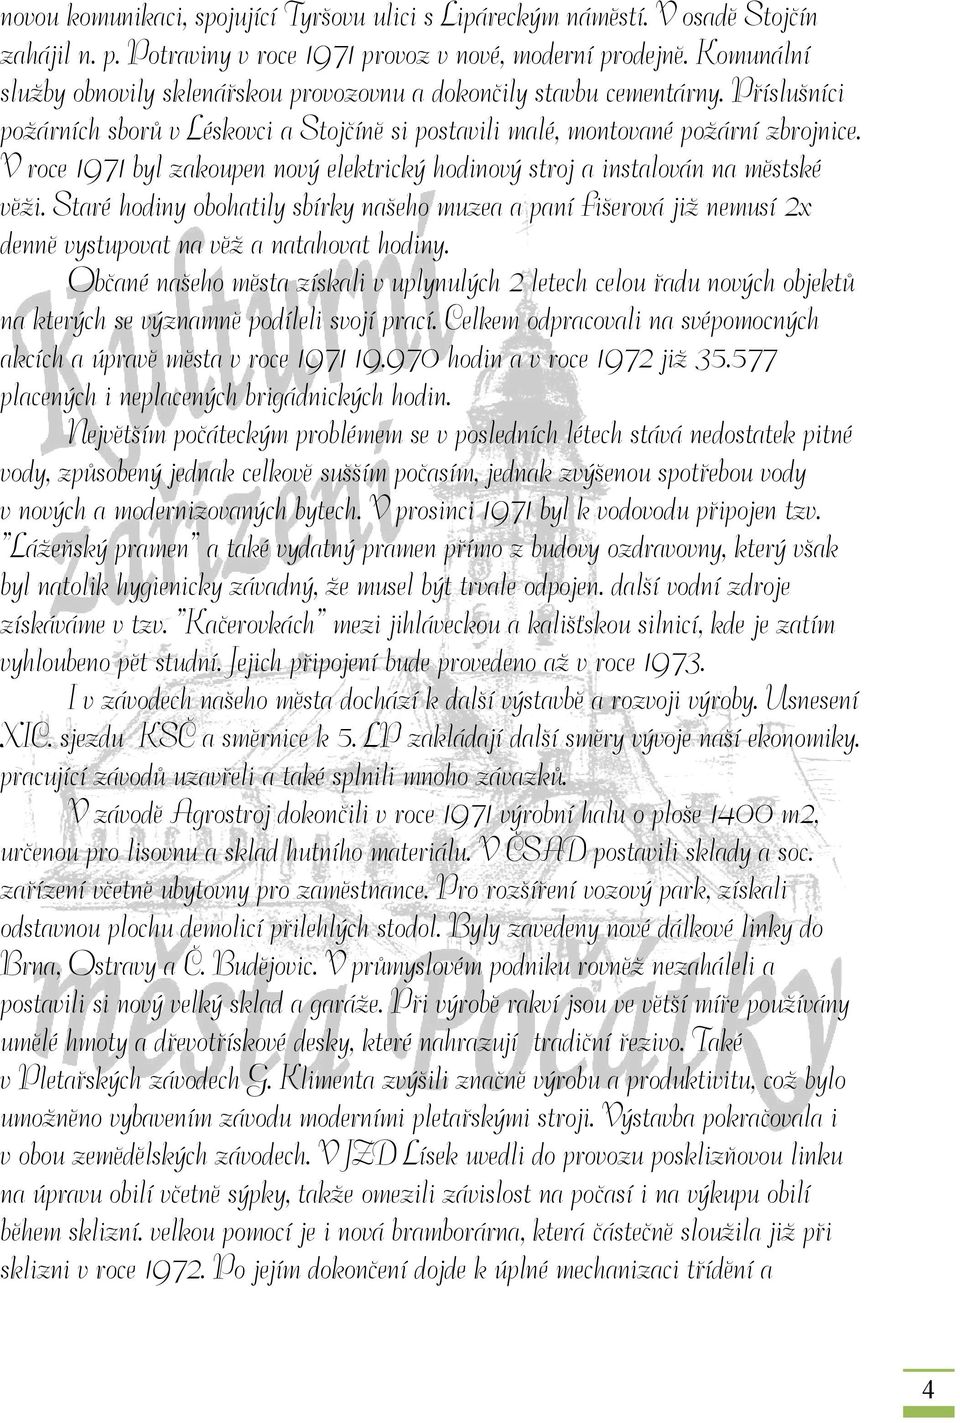 novou komunikaci, spojující Tyršovu ulici s Lipáreckým náměstí. V osadě Stojčín
zahájil n. p. Potraviny v roce 1971 provoz v nové, moderní prodejně. Komunální
služby obnovily sklenářskou provozovnu a dokončily stavbu cementárny. Příslušníci
požárních sborů v Léskovci a Stojčíně si postavili malé, montované požární zbrojnice.
V roce 1971 byl zakoupen nový elektrický hodinový stroj a instalován na městské
věži. Staré hodiny obohatily sbírky našeho muzea a paní fišerová již nemusí 2x
denně vystupovat na věž a natahovat hodiny.
Občané našeho města získali v uplynulých 2 letech celou řadu nových objektů
na kterých se významně podíleli svojí prací. Celkem odpracovali na svépomocných
akcích a úpravě města v roce 1971 19.970 hodin a v roce 1972 již 35.577
placených i neplacených brigádnických hodin.
Největším počáteckým problémem se v posledních létech stává nedostatek pitné
vody, způsobený jednak celkově sušším počasím, jednak zvýšenou spotřebou vody
v nových a modernizovaných bytech. V prosinci 1971 byl k vodovodu připojen tzv.
"Lážeňský pramen" a také vydatný pramen přímo z budovy ozdravovny, který však
byl natolik hygienicky závadný, že musel být trvale odpojen. další vodní zdroje
získáváme v tzv. "Kačerovkách" mezi jihláveckou a kališťskou silnicí, kde je zatím
vyhloubeno pět studní. Jejich připojení bude provedeno až v roce 1973.
I v závodech našeho města dochází k další výstavbě a rozvoji výroby. Usnesení
XIC. sjezdu KSČ a směrnice k 5. LP zakládají další směry vývoje naší ekonomiky.
pracující závodů uzavřeli a také splnili mnoho závazků.
V závodě Agrostroj dokončili v roce 1971 výrobní halu o ploše 1400 m2,
určenou pro lisovnu a sklad hutního materiálu. V ČSAD postavili sklady a soc.
zařízení včetně ubytovny pro zaměstnance. Pro rozšíření vozový park, získali
odstavnou plochu demolicí přilehlých stodol. Byly zavedeny nové dálkové linky do
Brna, Ostravy a Č. Budějovic. V průmyslovém podniku rovněž nezaháleli a
postavili si nový velký sklad a garáže. Při výrobě rakví jsou ve větší míře používány
umělé hmoty a dřevotřískové desky, které nahrazují tradiční řezivo. Také
v Pletařských závodech G. Klimenta zvýšili značně výrobu a produktivitu, což bylo
umožněno vybavením závodu moderními pletařskými stroji. Výstavba pokračovala i
v obou zemědělských závodech. V JZD Lísek uvedli do provozu posklizňovou linku
na úpravu obilí včetně sýpky, takže omezili závislost na počasí i na výkupu obilí
během sklizní. velkou pomocí je i nová bramborárna, která částečně sloužila již při
sklizni v roce 1972. Po jejím dokončení dojde k úplné mechanizaci třídění a
Kulturní
zařízení
města Počátky
4